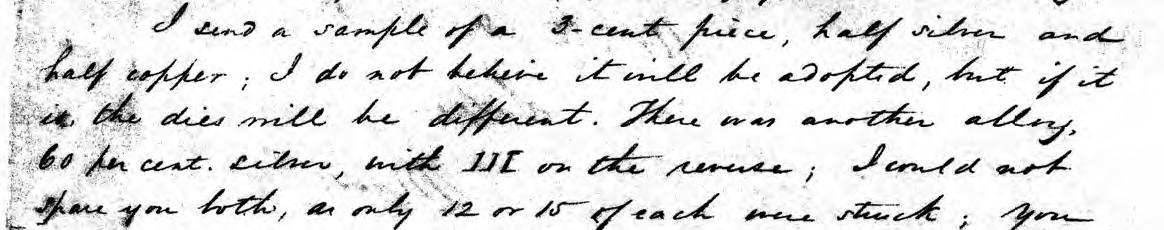 I send a sample of a 3-cent piece, half silver and
half copper; I do not believe it will be adopted, but if it
is, the dies will be different. There was another alloy,
60 per cent. silver, with III on the reverse; I could not
spare you both, as only 12 or 15 of each were struck; you